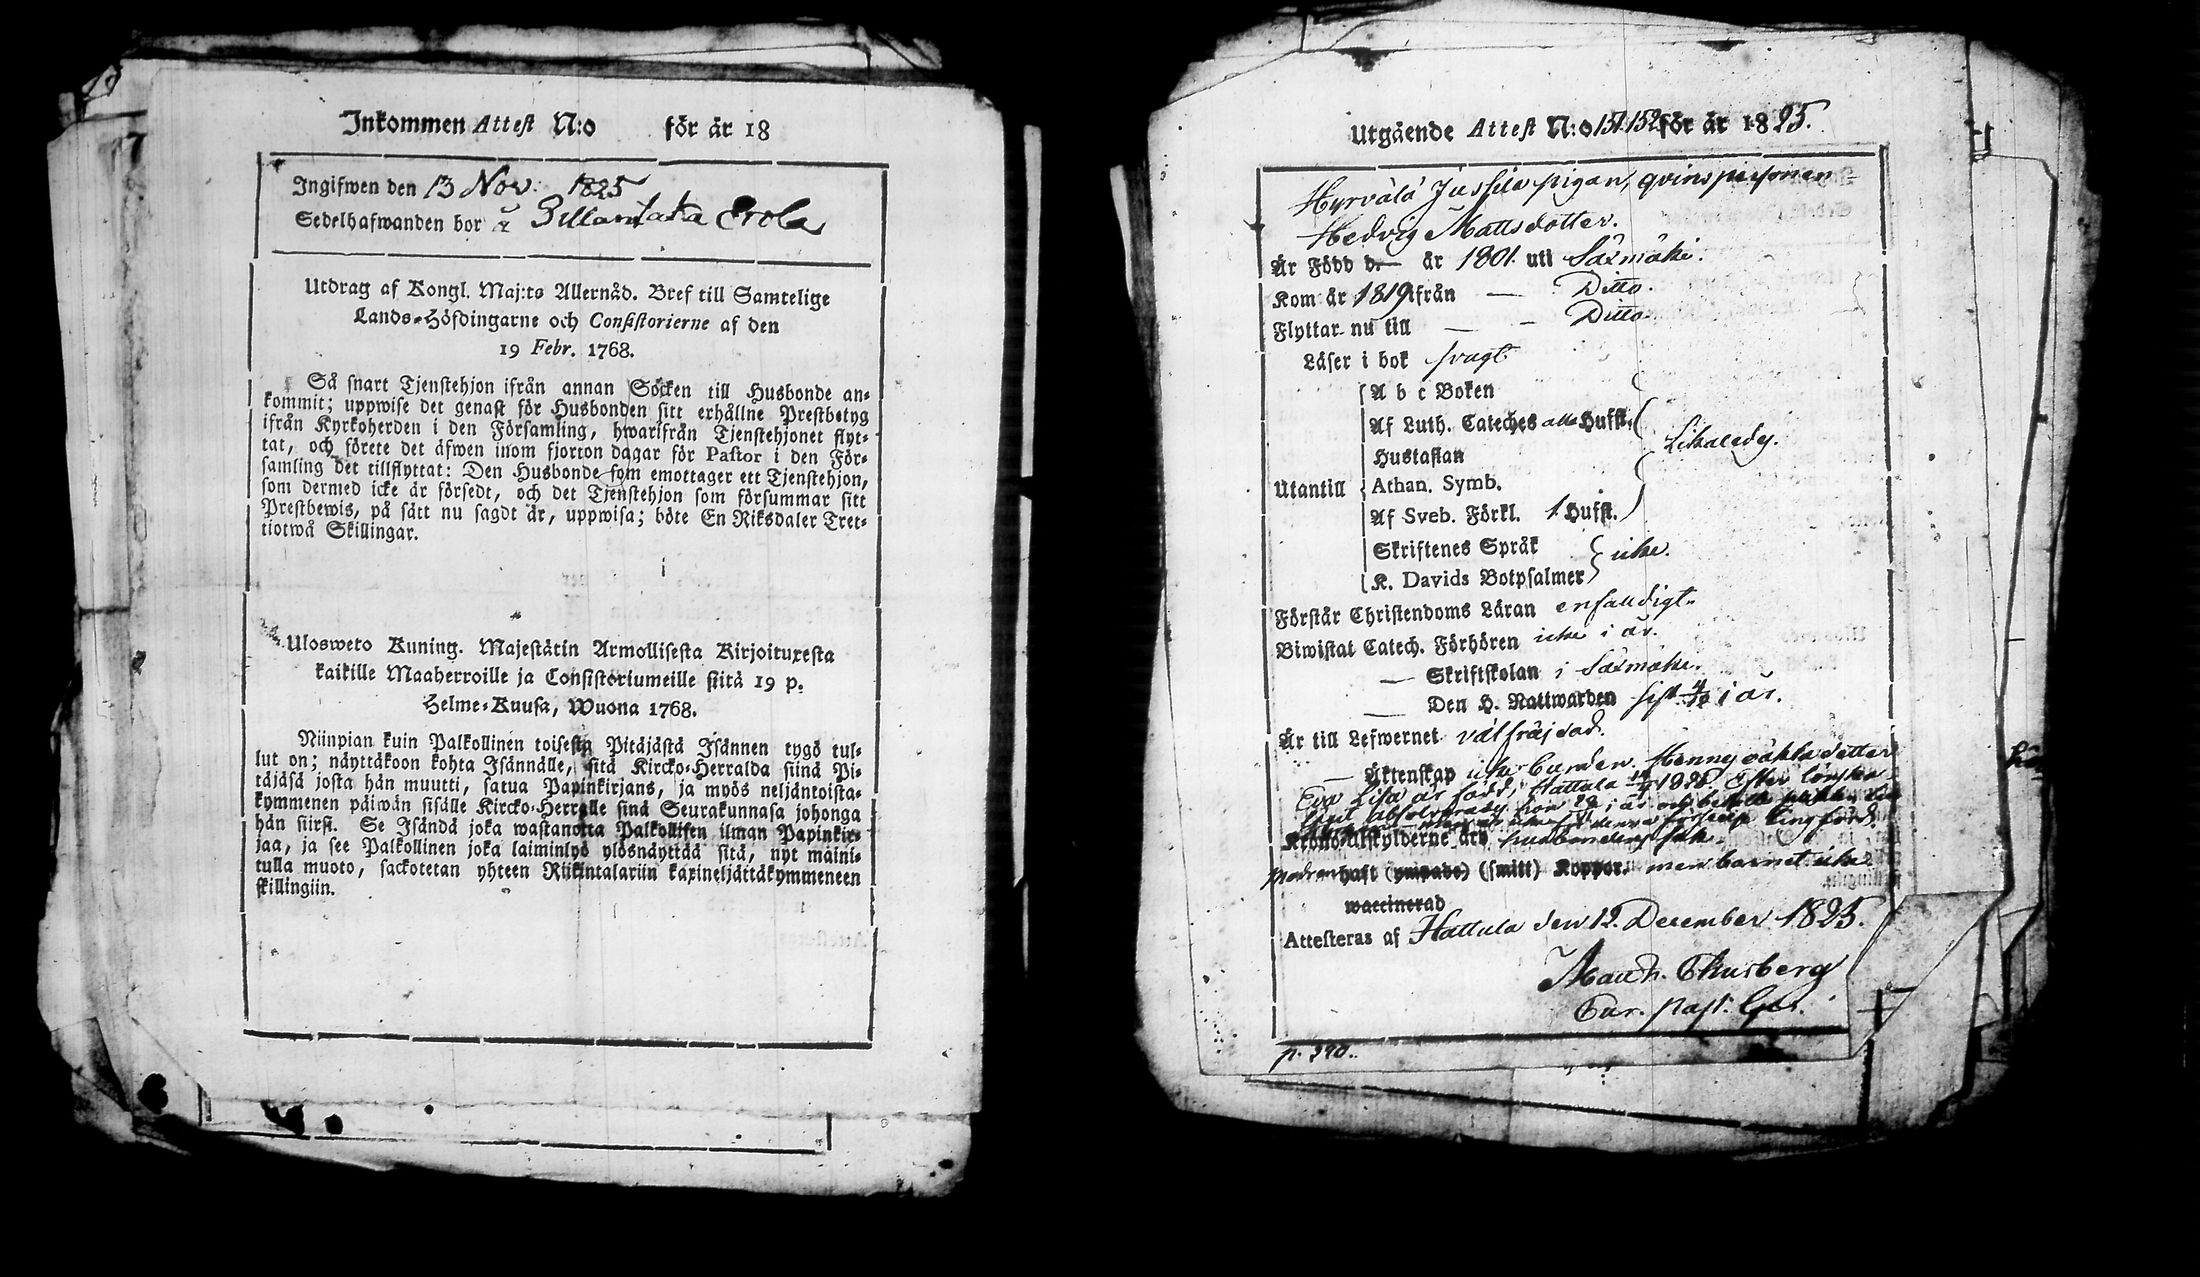 Inkommen Attest N:o för år 18
Ingifwen den 13 Nov. 1825
Sedelhafwanden bor i Erola
Utdrag af Kongl. Maj:ts Allernåd. Bref till Samtelige
Lands-Höfdingarne och Consistorierne af den
19 Febr. 1768.
Så snart Tjenstehjon ifrån annan Söcken till Husbonde an-
kommit; uppwise det genast för Husbonden sitt erhållne Prestbetyg
ifrån Kyrkoherden i den Församling, hwarifrån Tjenstehjonet flyt-
tat, och förete det äfwen inom fjorton dagar för Pastor i den För-
samling det tillflyttat: Den Husbonde som emottager ett Tjenstehjon,
som dermed icke är försedt, och det Tjenstehjon som försummar sitt
Prestbewis, på sätt nu sagdt är, uppwisa; böte En Riksdaler Tret-
tiotwå Skillingar.
Ulosweto Kuning. Majestätin Armollisesta Kirjoituxesta
kaikille Maaherroille ja Consistoriumeille siitä 19 p.
Helme-Kuusa, Wuona 1768.
Niinpian kuin Palkollinen toisesta Pitäjästä Isännen tygö tul-
lut on; näyttäkoon kohta Isännälle, sitä Kircko-Herralda siinä Pi-
täjäsä josta hän muutti, satua Papinkirjans, ja myös neljäntoista-
kymmenen päiwän sisälle Kircko-Herralle sinä Seurakunnasa johonga
hän siirsi. Se Isändä joka wastanotta Palkollisen ilman Papinkir-
jaa, ja see Palkollinen joka laiminlyö ylösnäyttää sitä, nyt maini-
tulla muoto, sackotetan yhteen Riikintalariin kaxineljättäkymmeneen
skillingiin.
Utgående Attest N:o 151.152 för år 1825.
Hyrvälä Jussila pigan, qvinspersonen
Hedvig Mattsdotter.
Är Född d.— år 1801. uti Säxmäki.
Kom år 1819 ifrån — Ditto.
Flyttar nu till — — Ditto.
Läser i bok svagt
A b c Boken
Af Luth. Cateches alla Hufst.
Hustaflan
Likaledes.
Utantill Athan. Symb.
Af Sveb. Förkl. 1 Hufst.
Skriftenes Språk
icke.
K. Davids Botpsalmer
Förstår Christendoms Läran enfaldigt.
Biwistat Catech. Förhören icke i år.
— Skriftskolan i Säxmäki.
— Den H. Nattwarden sist i år.
Är till Lefwernet välfräjdad.
— Äktenskap icke dotter
Eva Lisa är född i Hattula 1825. Efter
Kronoutskylderne äro husbondens sak.
Modren haft (ympade) (smitt) Koppor. men barnet icke
waccinerad
Attesteras af Hattula den 12. December 1825.
Math. Ekusberg
Cur. past.
p. 290.